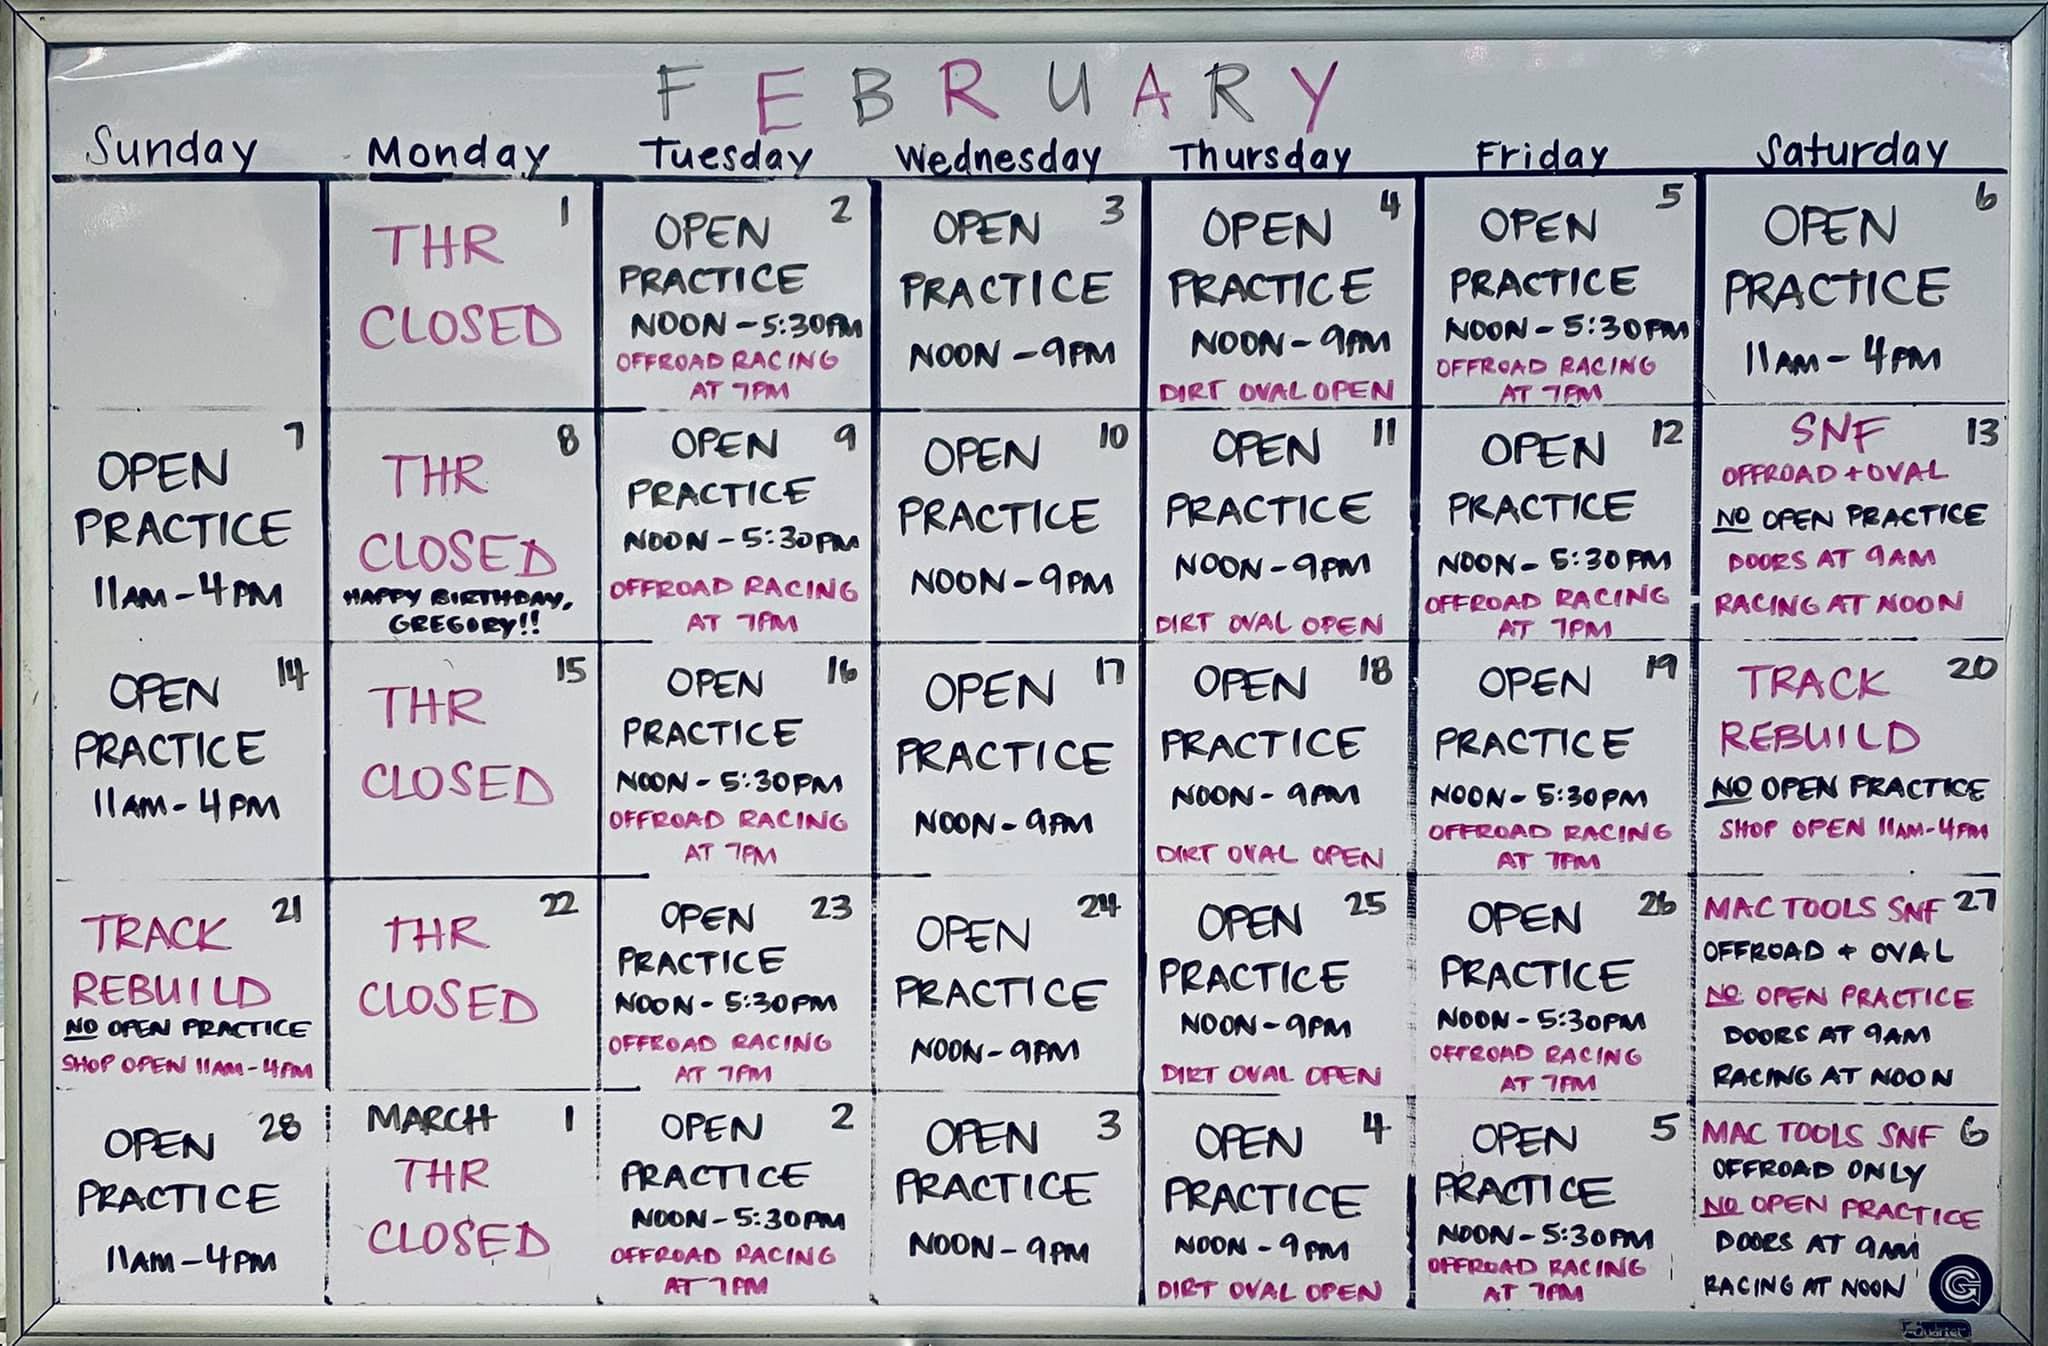 FEBRUARY
Sunday Monday Tuesday Wednesday Thursday Friday Saturday
1
THR
CLOSED
2
OPEN
PRACTICE
NOON - 5:30PM
OFFROAD RACING
AT 7PM
3
OPEN
PRACTICE
NOON - 9PM
4
OPEN
PRACTICE
NOON - 9PM
DIRT OVAL OPEN
5
OPEN
PRACTICE
NOON - 5:30PM
OFFROAD RACING
AT 7PM
6
OPEN
PRACTICE
11AM - 4PM
7
OPEN
PRACTICE
11AM - 4PM
8
THR
CLOSED
HAPPY BIRTHDAY,
GREGORY!!
9
OPEN
PRACTICE
NOON - 5:30PM
OFFROAD RACING
AT 7PM
10
OPEN
PRACTICE
NOON - 9PM
11
OPEN
PRACTICE
NOON - 9PM
DIRT OVAL OPEN
12
OPEN
PRACTICE
NOON - 5:30PM
OFFROAD RACING
AT 7PM
SNF 13
OFFROAD + OVAL
NO OPEN PRACTICE
DOORS AT 9AM
RACING AT NOON
14
OPEN
PRACTICE
11AM - 4PM
15
THR
CLOSED
16
OPEN
PRACTICE
NOON - 5:30PM
OFFROAD RACING
AT 7PM
17
OPEN
PRACTICE
NOON - 9PM
18
OPEN
PRACTICE
NOON - 9PM
DIRT OVAL OPEN
19
OPEN
PRACTICE
NOON - 5:30PM
OFFROAD RACING
AT 7PM
20
TRACK
REBUILD
NO OPEN PRACTICE
SHOP OPEN 11AM - 4PM
21
TRACK
REBUILD
NO OPEN PRACTICE
SHOP OPEN 11AM - 4PM
22
THR
CLOSED
23
OPEN
PRACTICE
NOON - 5:30PM
OFFROAD RACING
AT 7PM
24
OPEN
PRACTICE
NOON - 9PM
25
OPEN
PRACTICE
NOON - 9PM
DIRT OVAL OPEN
26
OPEN
PRACTICE
NOON - 5:30PM
OFFROAD RACING
AT 7PM
MAC TOOLS SNF 27
OFFROAD + OVAL
NO OPEN PRACTICE
DOORS AT 9AM
RACING AT NOON
28
OPEN
PRACTICE
11AM - 4PM
MARCH 1
THR
CLOSED
2
OPEN
PRACTICE
NOON - 5:30PM
OFFROAD RACING
AT 7PM
3
OPEN
PRACTICE
NOON - 9PM
4
OPEN
PRACTICE
NOON - 9PM
DIRT OVAL OPEN
5
OPEN
PRACTICE
NOON - 5:30PM
OFFROAD RACING
AT 7PM
MAC TOOLS SNF 6
OFFROAD ONLY
NO OPEN PRACTICE
DOORS AT 9AM
RACING AT NOON
G